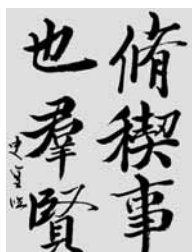 脩稧事
也羣賢